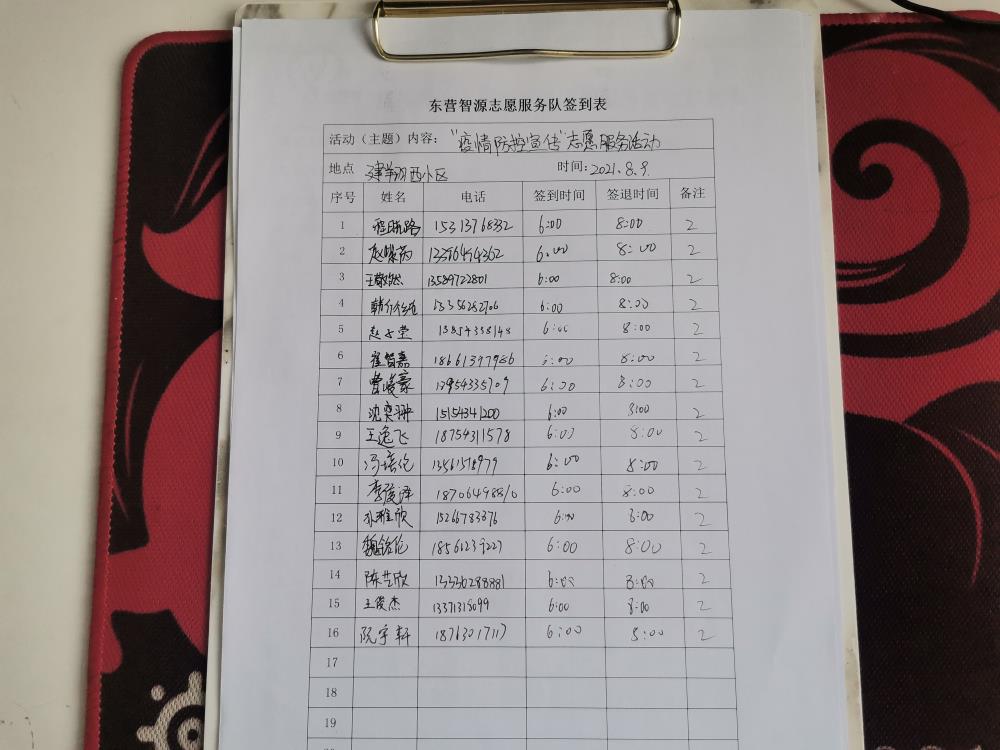 东营智源志愿服务队签到表
活动（主题）内容： "疫情防控宣传"志愿服务活动
地点 建翔西小区 时间: 2021.8.9
序号 姓名 电话 签到时间 签退时间 备注
1 15313768332 6:00 8:00 2
2 13396494362 6:00 8:00 2
3 13589722801 6:00 8:00 2
4 6:00 8:00 2
5 13854338148 6:00 8:00 2
6 崔智嘉 18661397986 6:00 8:00 2
7 曹峻豪 13954335709 6:00 8:00 2
8 沈奕翀 15154341200 6:00 8:00 2
9 王逸飞 18754311578 6:00 8:00 2
10 冯培伦 13561518979 6:00 8:00 2
11 李俊泽 18706498810 6:00 8:00 2
12 孙雅欣 15266783376 6:00 8:00 2
13 魏铭伦 6:00 8:00 2
14 陈艺欣 13336288881 6:00 8:00 2
15 王俊杰 13371318099 6:00 8:00 2
16 阮宇轩 18763017117 6:00 8:00 2
17
18
19